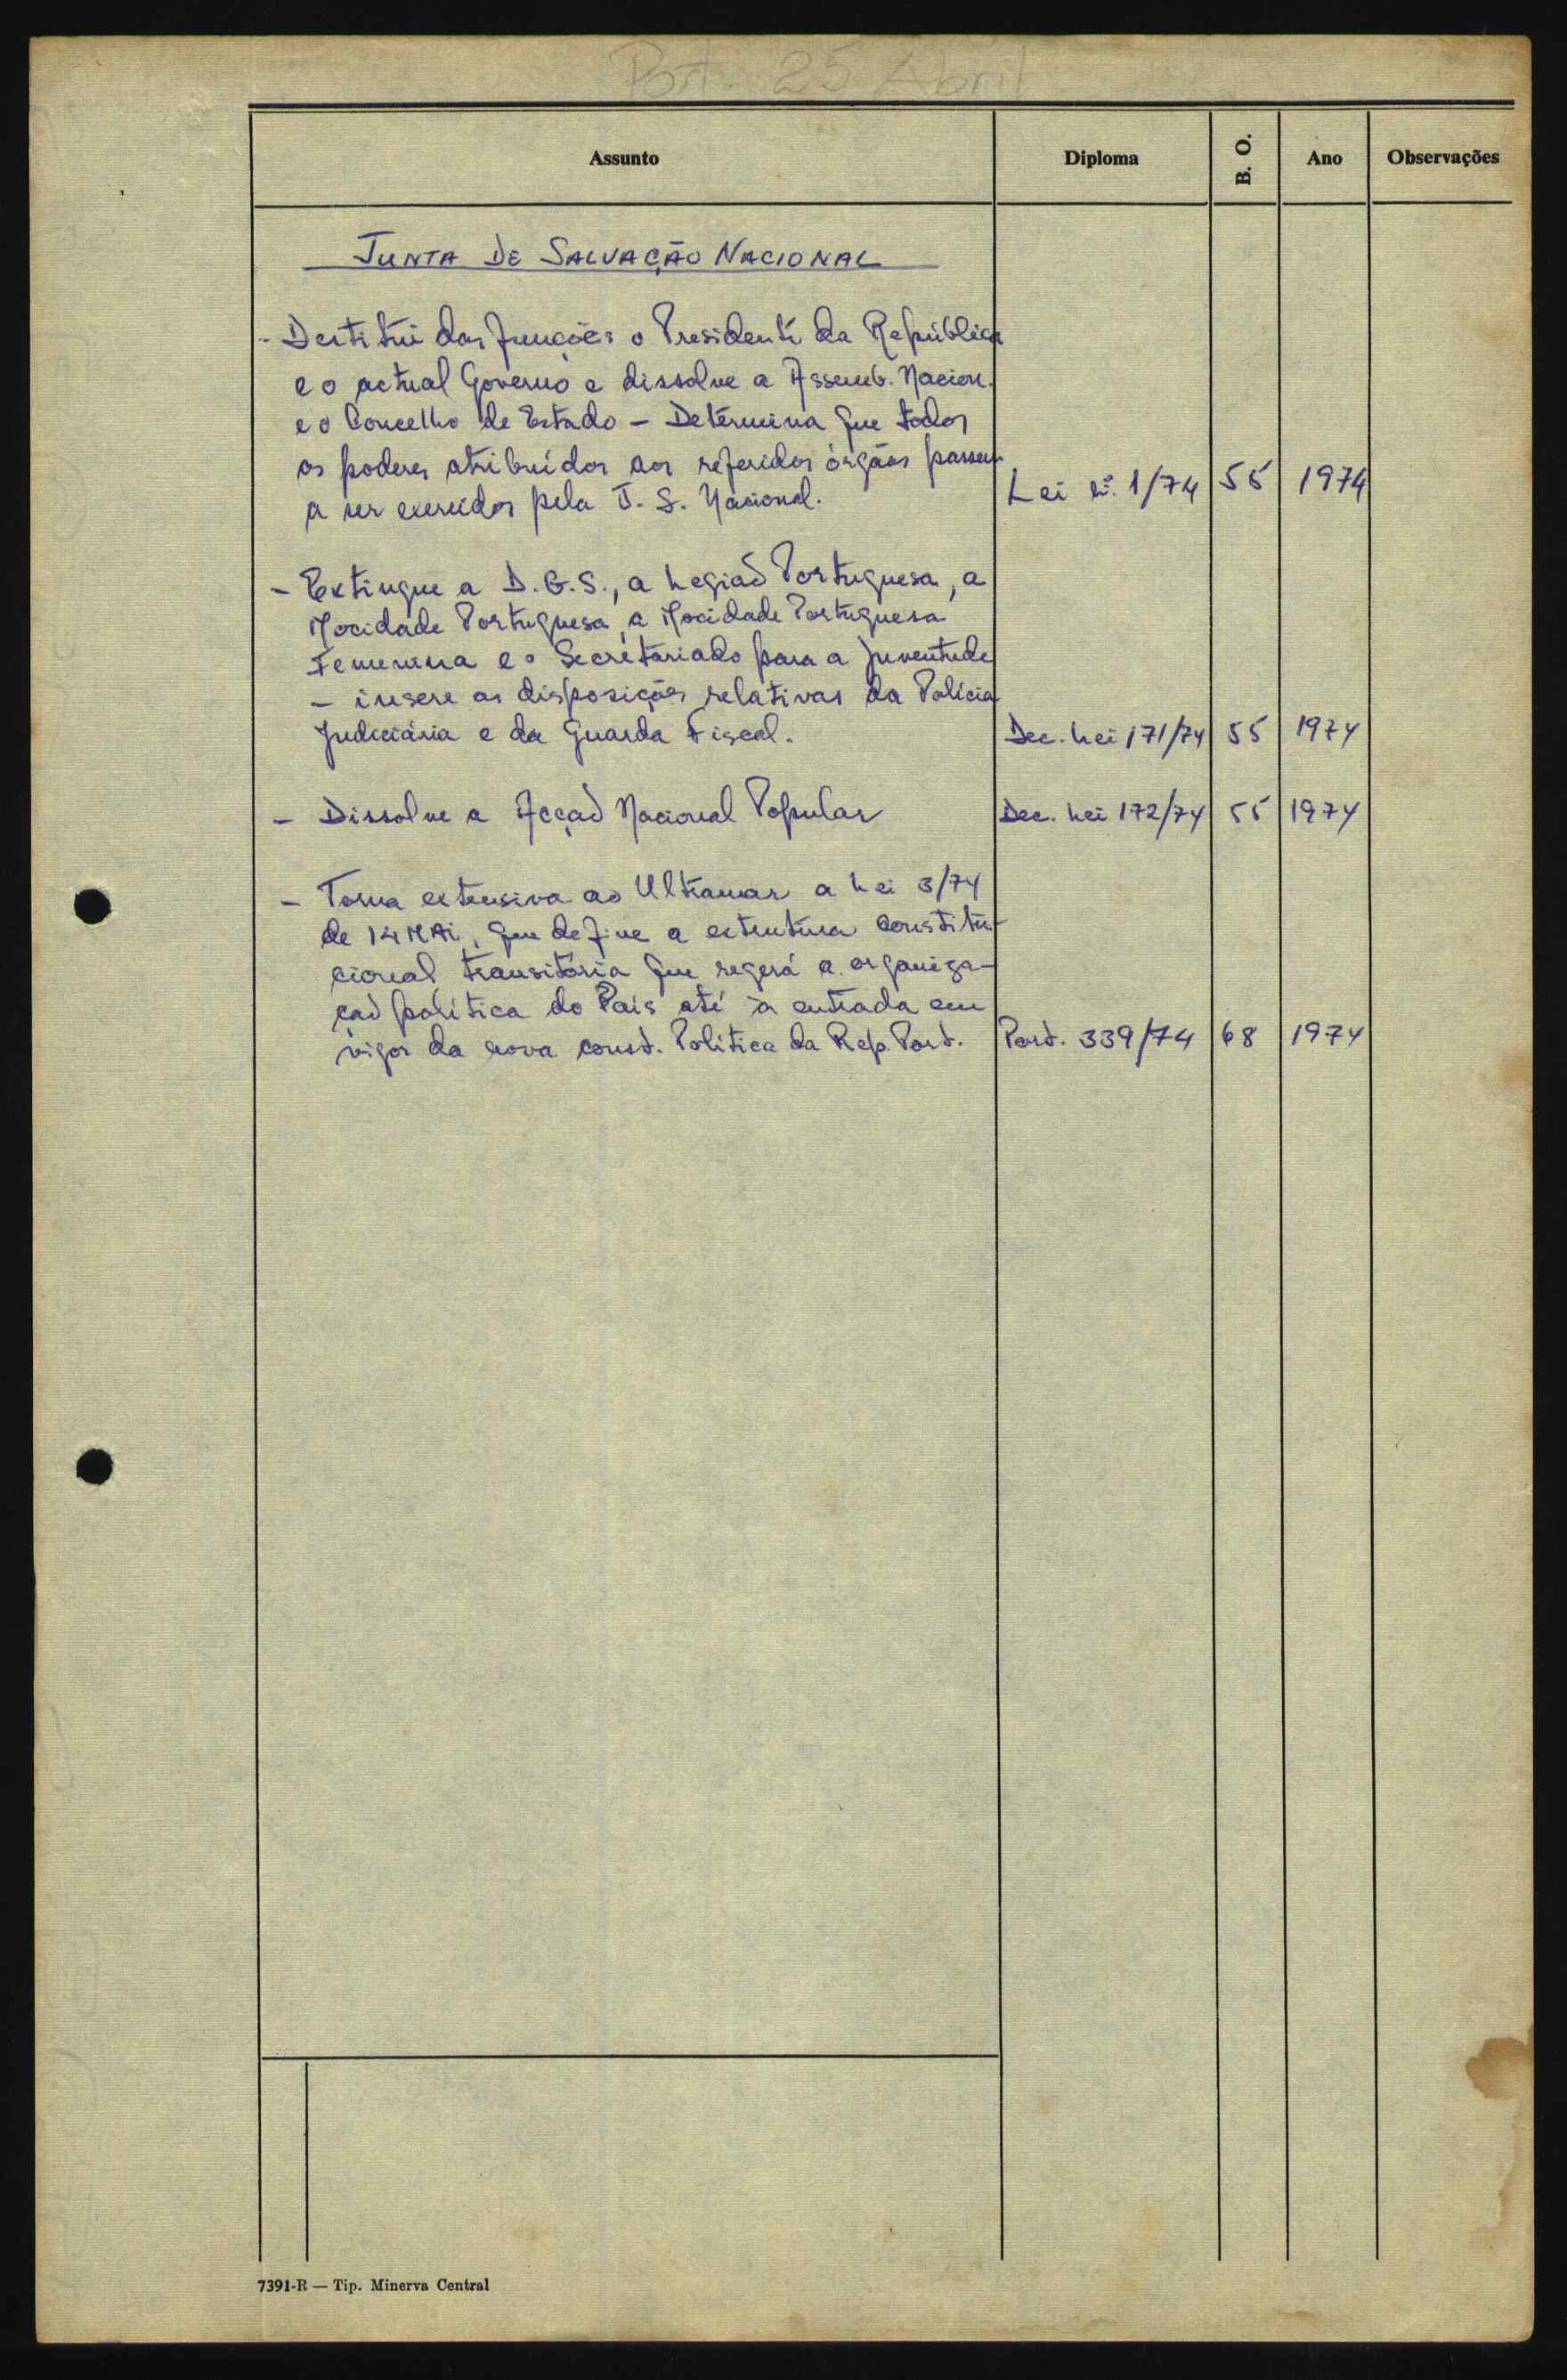 Port. 25 Abril
Assunto Diploma B. O. Ano Observações
JUNTA DE SALVAÇÃO NACIONAL
- Destitui das funções o Presidente da República
e o actual Governo e dissolve a Assemb. Nacion.
e o Concelho de Estado - Determina que todos
os poderes atribuídos aos referidos órgãos passem
a ser exercidos pela J. S. Nacional. Lei nº. 1/74 55 1974
- Extingue a D.G.S., a Legião Portuguesa, a
Mocidade Portuguesa, a Mocidade Portuguesa
Femenina e o Secretariado para a Juventude
- insere as disposições relativas da Polícia
Judiciária e da Guarda Fiscal. Dec. Lei 171/74 55 1974
- Dissolve a Acção Nacional Popular Dec. Lei 172/74 55 1974
- Torna extensiva ao Ultramar a Lei 3/74
de 14 MAI, que define a estrutura constitu-
cional transitória que regerá a organiza-
ção política do País até à entrada em
vigor da nova const. Política da Rep. Port. Port. 339/74 68 1974
7391-R — Tip. Minerva Central